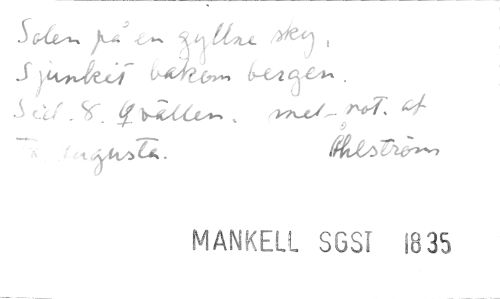 Solen på en gyllne sky,
Sjunkit bakom bergen.
Sid. 8. Qvällen. mel-not. af
Augusta. Åhlström
MANKELL SGSI 1835